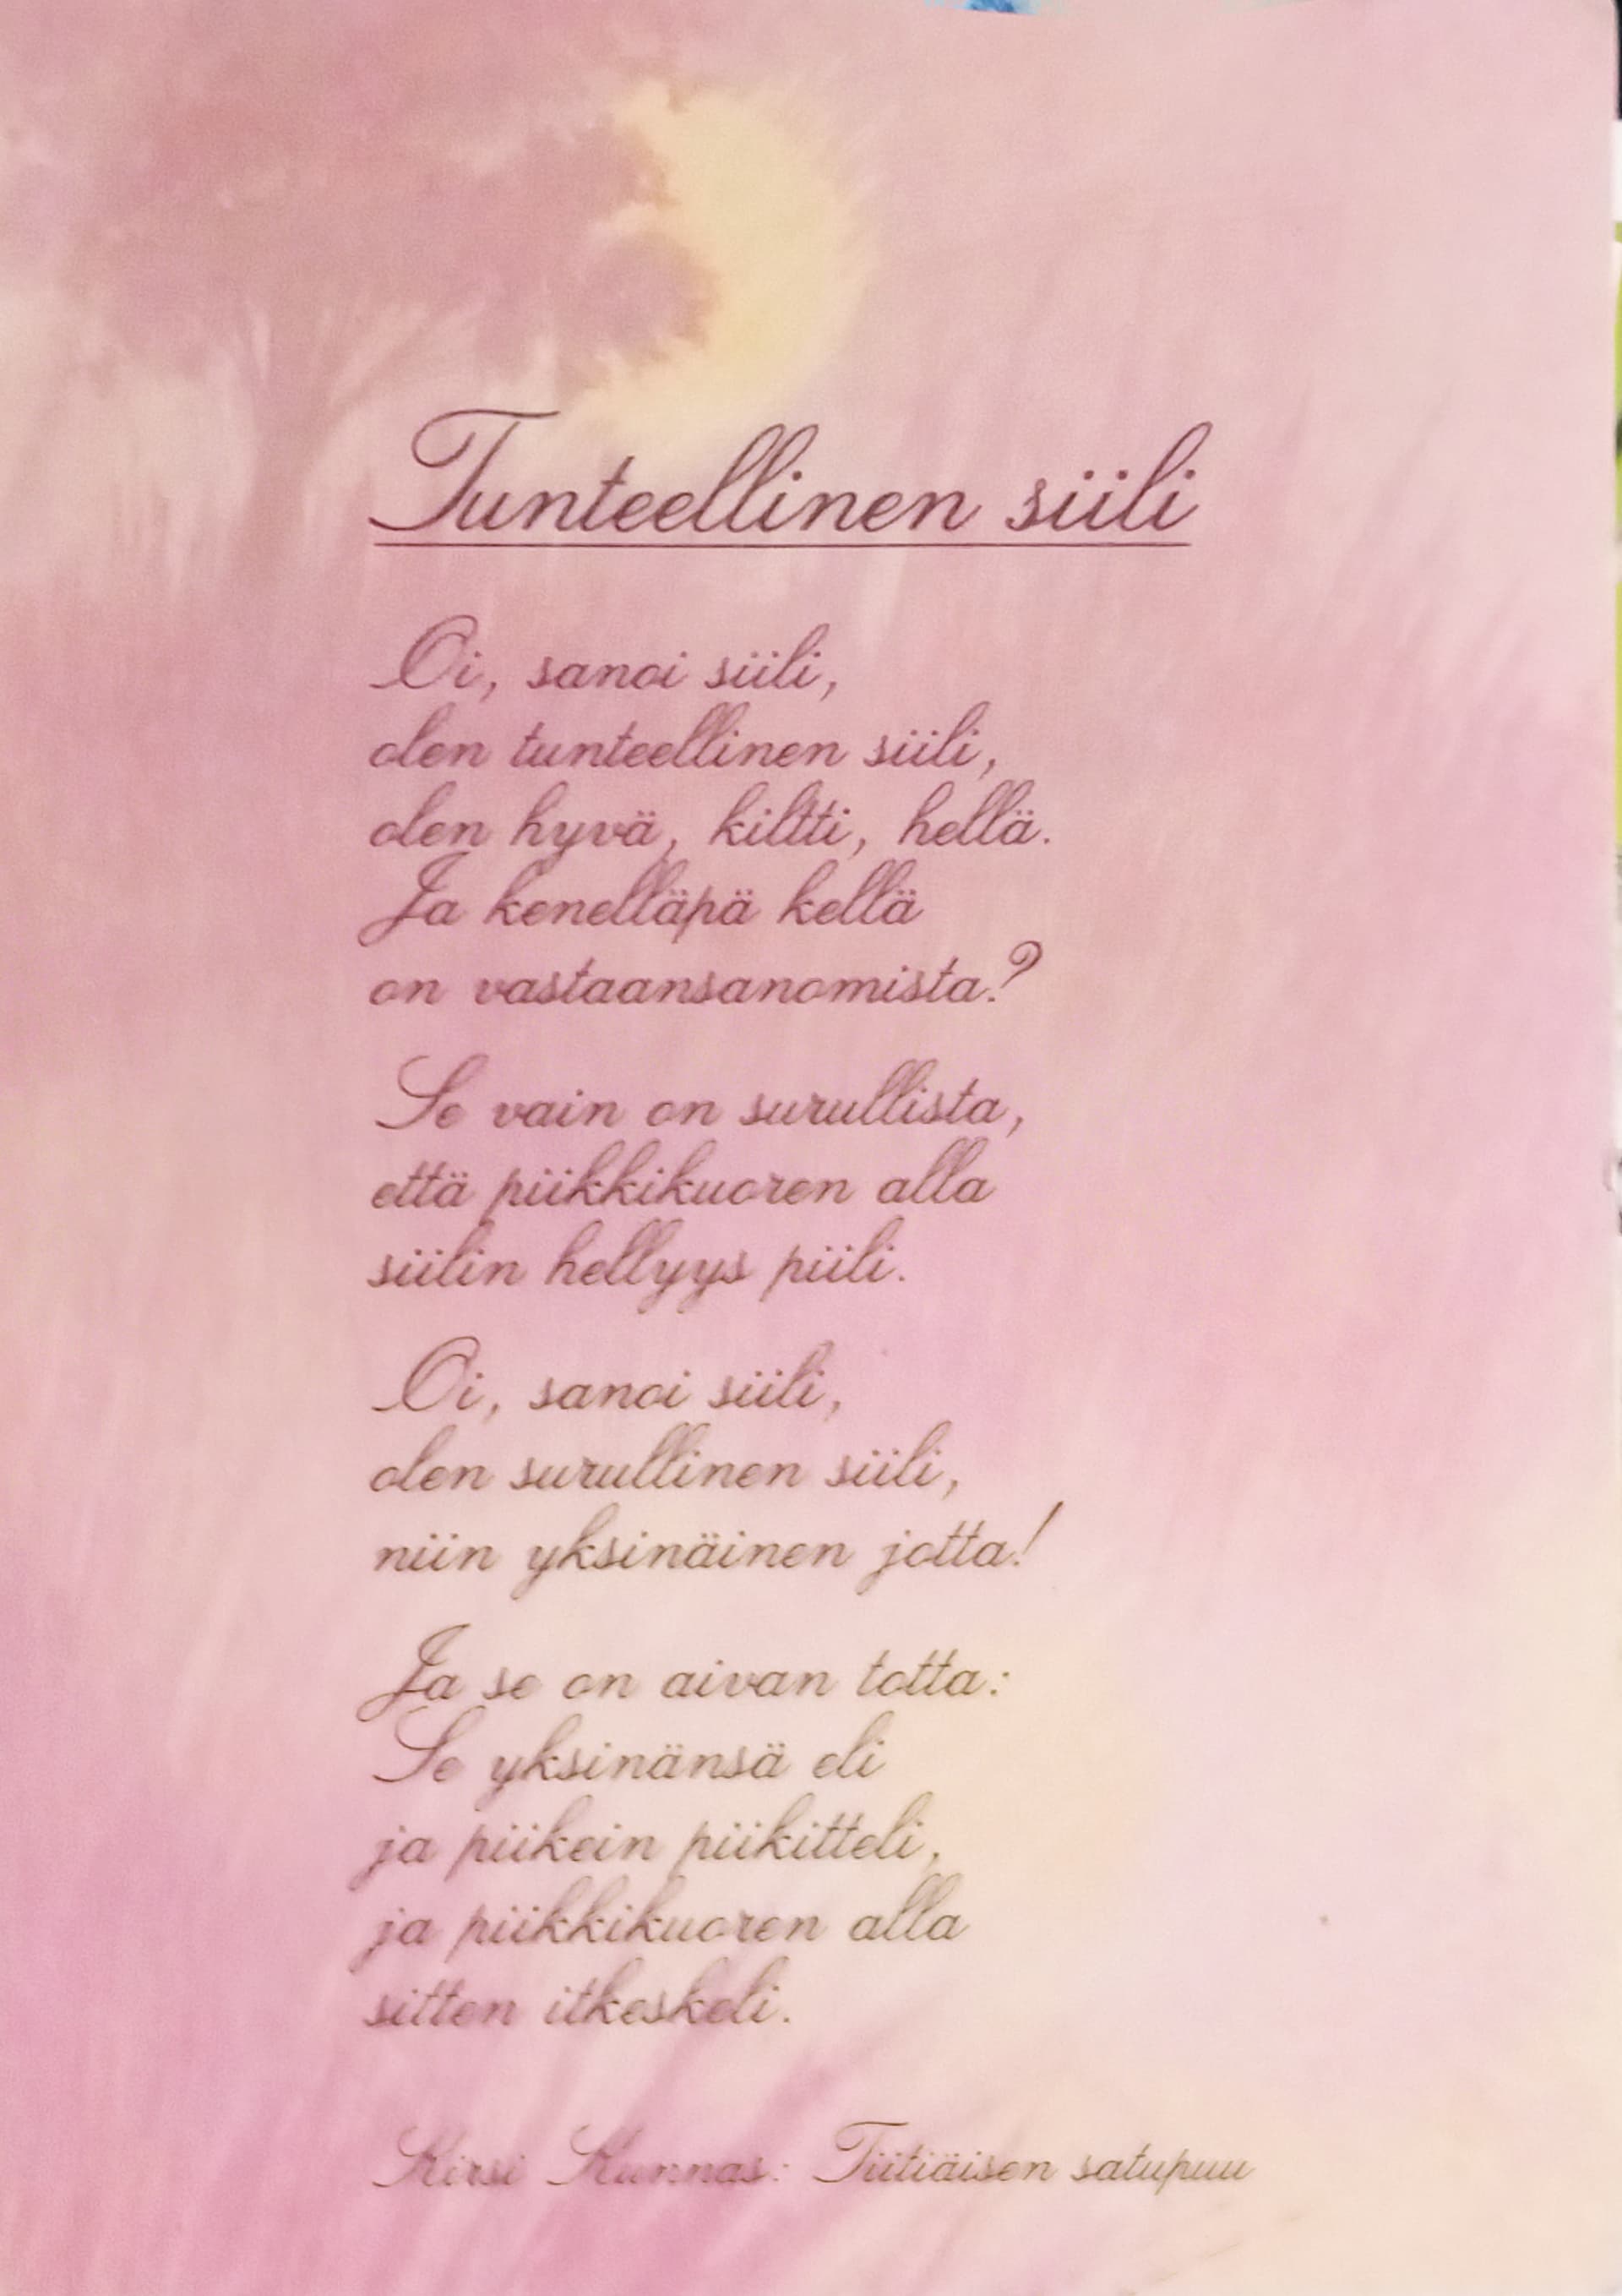 Tunteellinen siili
Oi, sanoi siili,
olen tunteellinen siili,
olen hyvä, kiltti, hellä.
Ja kenelläpä kellä
on vastaansanomista?
Se vain on surullista,
että piikkikuoren alla
siilin hellyys piili.
Oi, sanoi siili,
olen surullinen siili,
niin yksinäinen jotta!
Ja se on aivan totta:
Se yksinänsä eli
ja piikein piikitteli,
ja piikkikuoren alla
sitten itkeskeli.
Kirsi Kunnas: Tiitiäisen satupuu